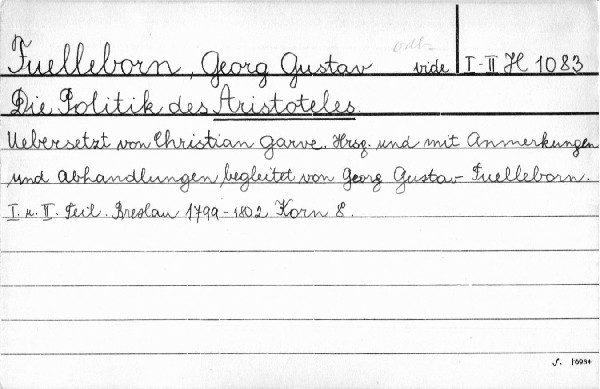 Fuelleborn, Georg Gustav vide I-II H 1083
Die Politik des Aristoteles.
Uebersetzt von Christian Garve. Hrsg. und mit Anmerkungen
und Abhandlungen begleitet von Georg Gustav Fuelleborn.
I. u. II. Teil. Breslau 1799-1802 Korn 8.